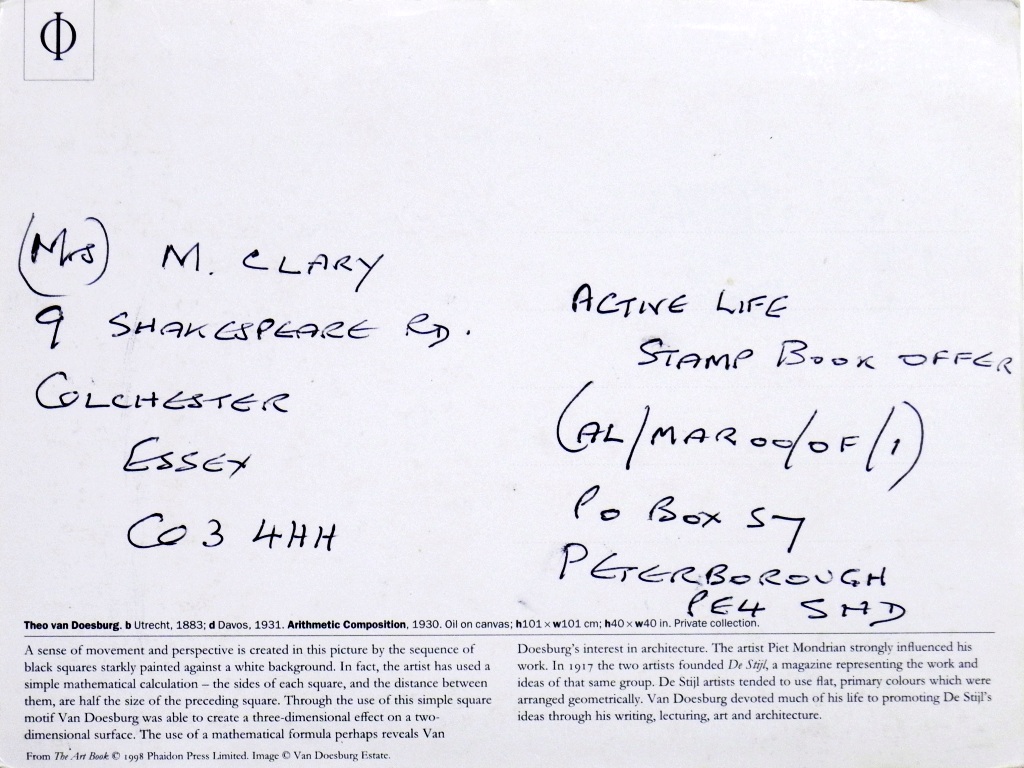 Φ
(Mrs) M. CLARY
9 SHAKESPEARE RD.
COLCHESTER
ESSEX
CO3 4HH
ACTIVE LIFE
STAMP BOOK OFFER
(AL/MAR00/OF/1)
PO BOX 57
PETERBOROUGH
PE4 5HD
Theo van Doesburg. b Utrecht, 1883; d Davos, 1931. Arithmetic Composition, 1930. Oil on canvas; h101 × w101 cm; h40 × w40 in. Private collection.
A sense of movement and perspective is created in this picture by the sequence of
black squares starkly painted against a white background. In fact, the artist has used a
simple mathematical calculation – the sides of each square, and the distance between
them, are half the size of the preceding square. Through the use of this simple square
motif Van Doesburg was able to create a three-dimensional effect on a two-
dimensional surface. The use of a mathematical formula perhaps reveals Van
Doesburg's interest in architecture. The artist Piet Mondrian strongly influenced his
work. In 1917 the two artists founded De Stijl, a magazine representing the work and
ideas of that same group. De Stijl artists tended to use flat, primary colours which were
arranged geometrically. Van Doesburg devoted much of his life to promoting De Stijl's
ideas through his writing, lecturing, art and architecture.
From The Art Book © 1998 Phaidon Press Limited. Image © Van Doesburg Estate.